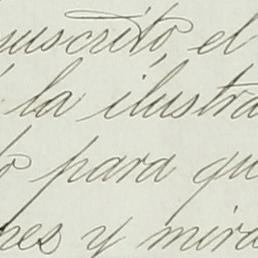 uscrito, el
la ilustra
o para qu
nes y mira